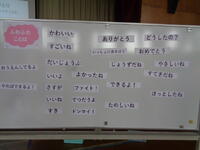 ふわふわ
ことば
かわいい
すごいね
ありがとう
どうしたの？
おめでとう
だいじょうぶ
じょうずだね
やさしいね
おうえんしてるよ
いいよ
よかったね
すてきだね
さすが
ファイト！
できるよ！
やればできるよ！
ほっとしたね
いいね
てつだうよ
たのしいね
すき
ドンマイ！